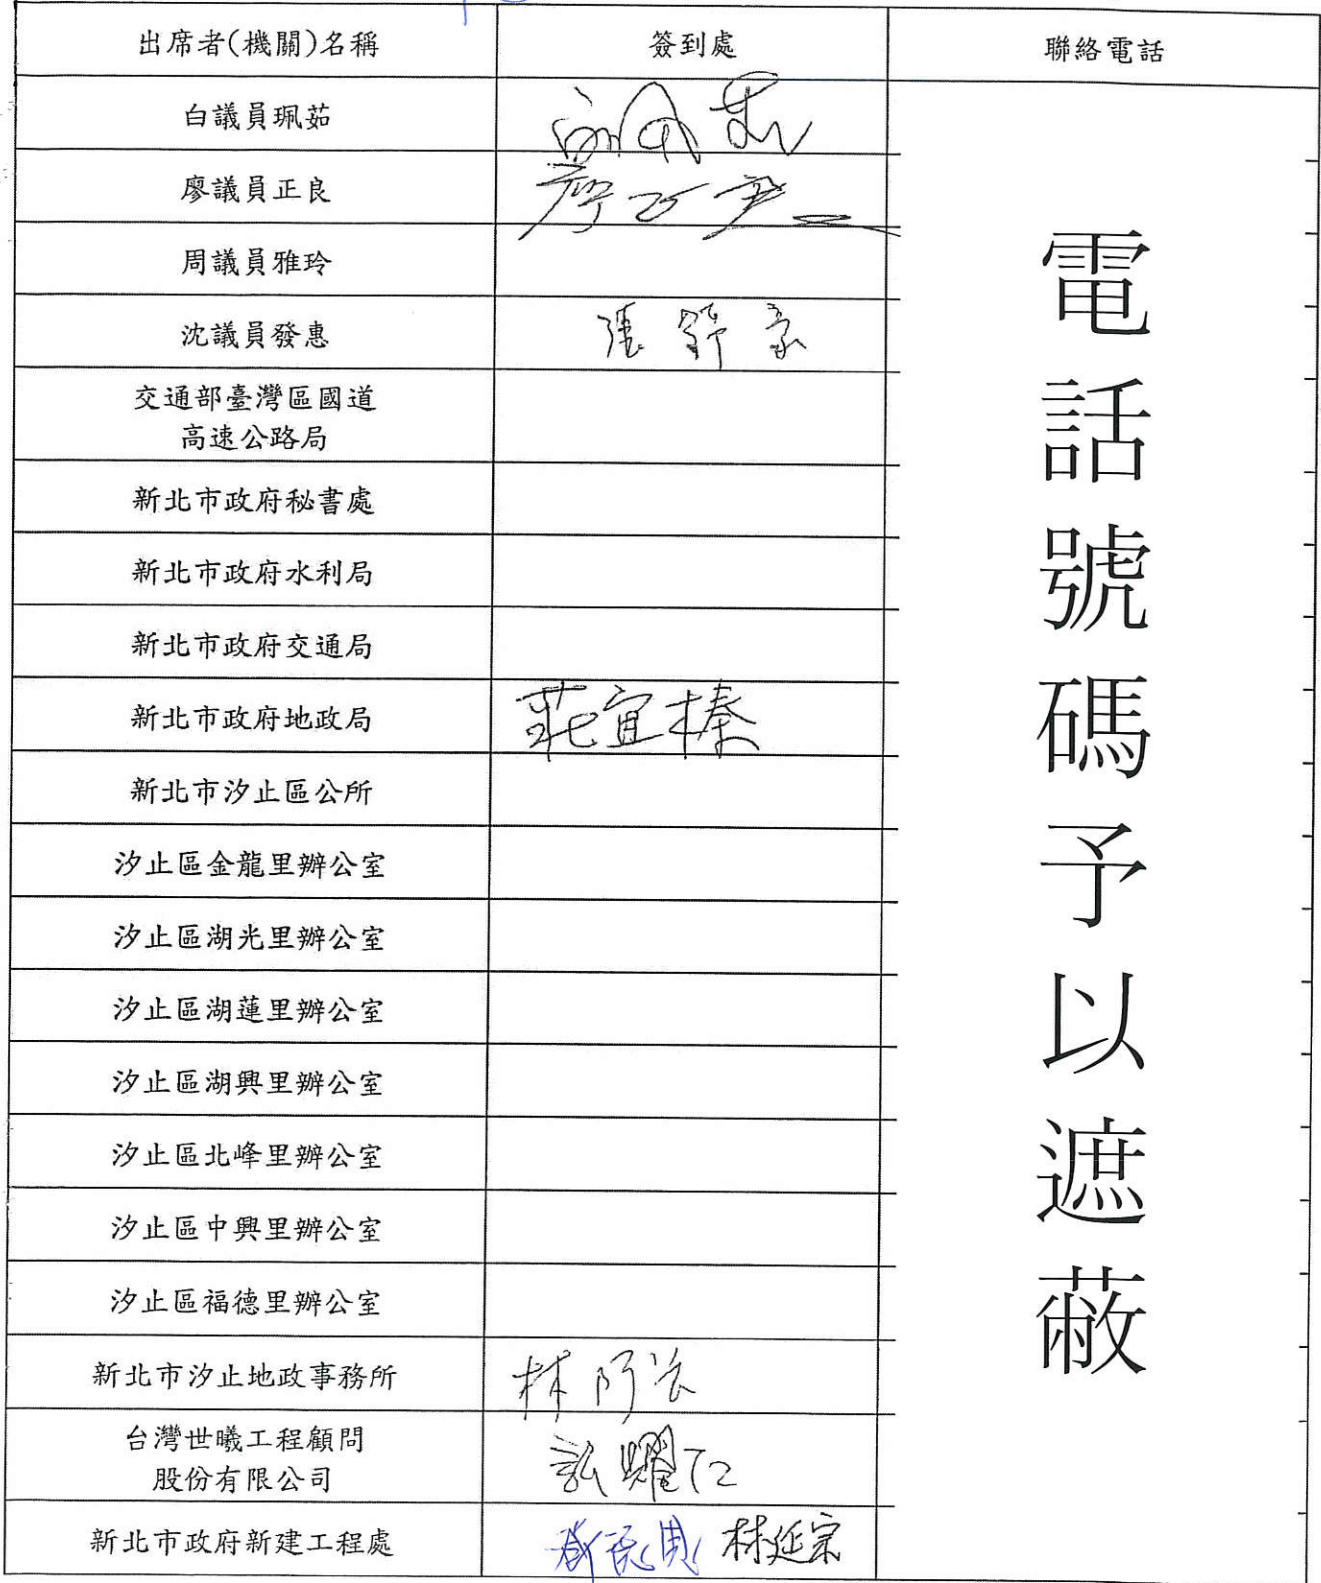 出席者(機關)名稱 簽到處 聯絡電話
白議員珮茹
廖議員正良
周議員雅玲
沈議員發惠
交通部臺灣區國道
高速公路局
新北市政府秘書處
新北市政府水利局
新北市政府交通局
新北市政府地政局 莊宜榛
新北市汐止區公所
汐止區金龍里辦公室
汐止區湖光里辦公室
汐止區湖蓮里辦公室
汐止區湖興里辦公室
汐止區北峰里辦公室
汐止區中興里辦公室
汐止區福德里辦公室
新北市汐止地政事務所
台灣世曦工程顧問
股份有限公司
新北市政府新建工程處 林延宗
電話號碼予以遮蔽